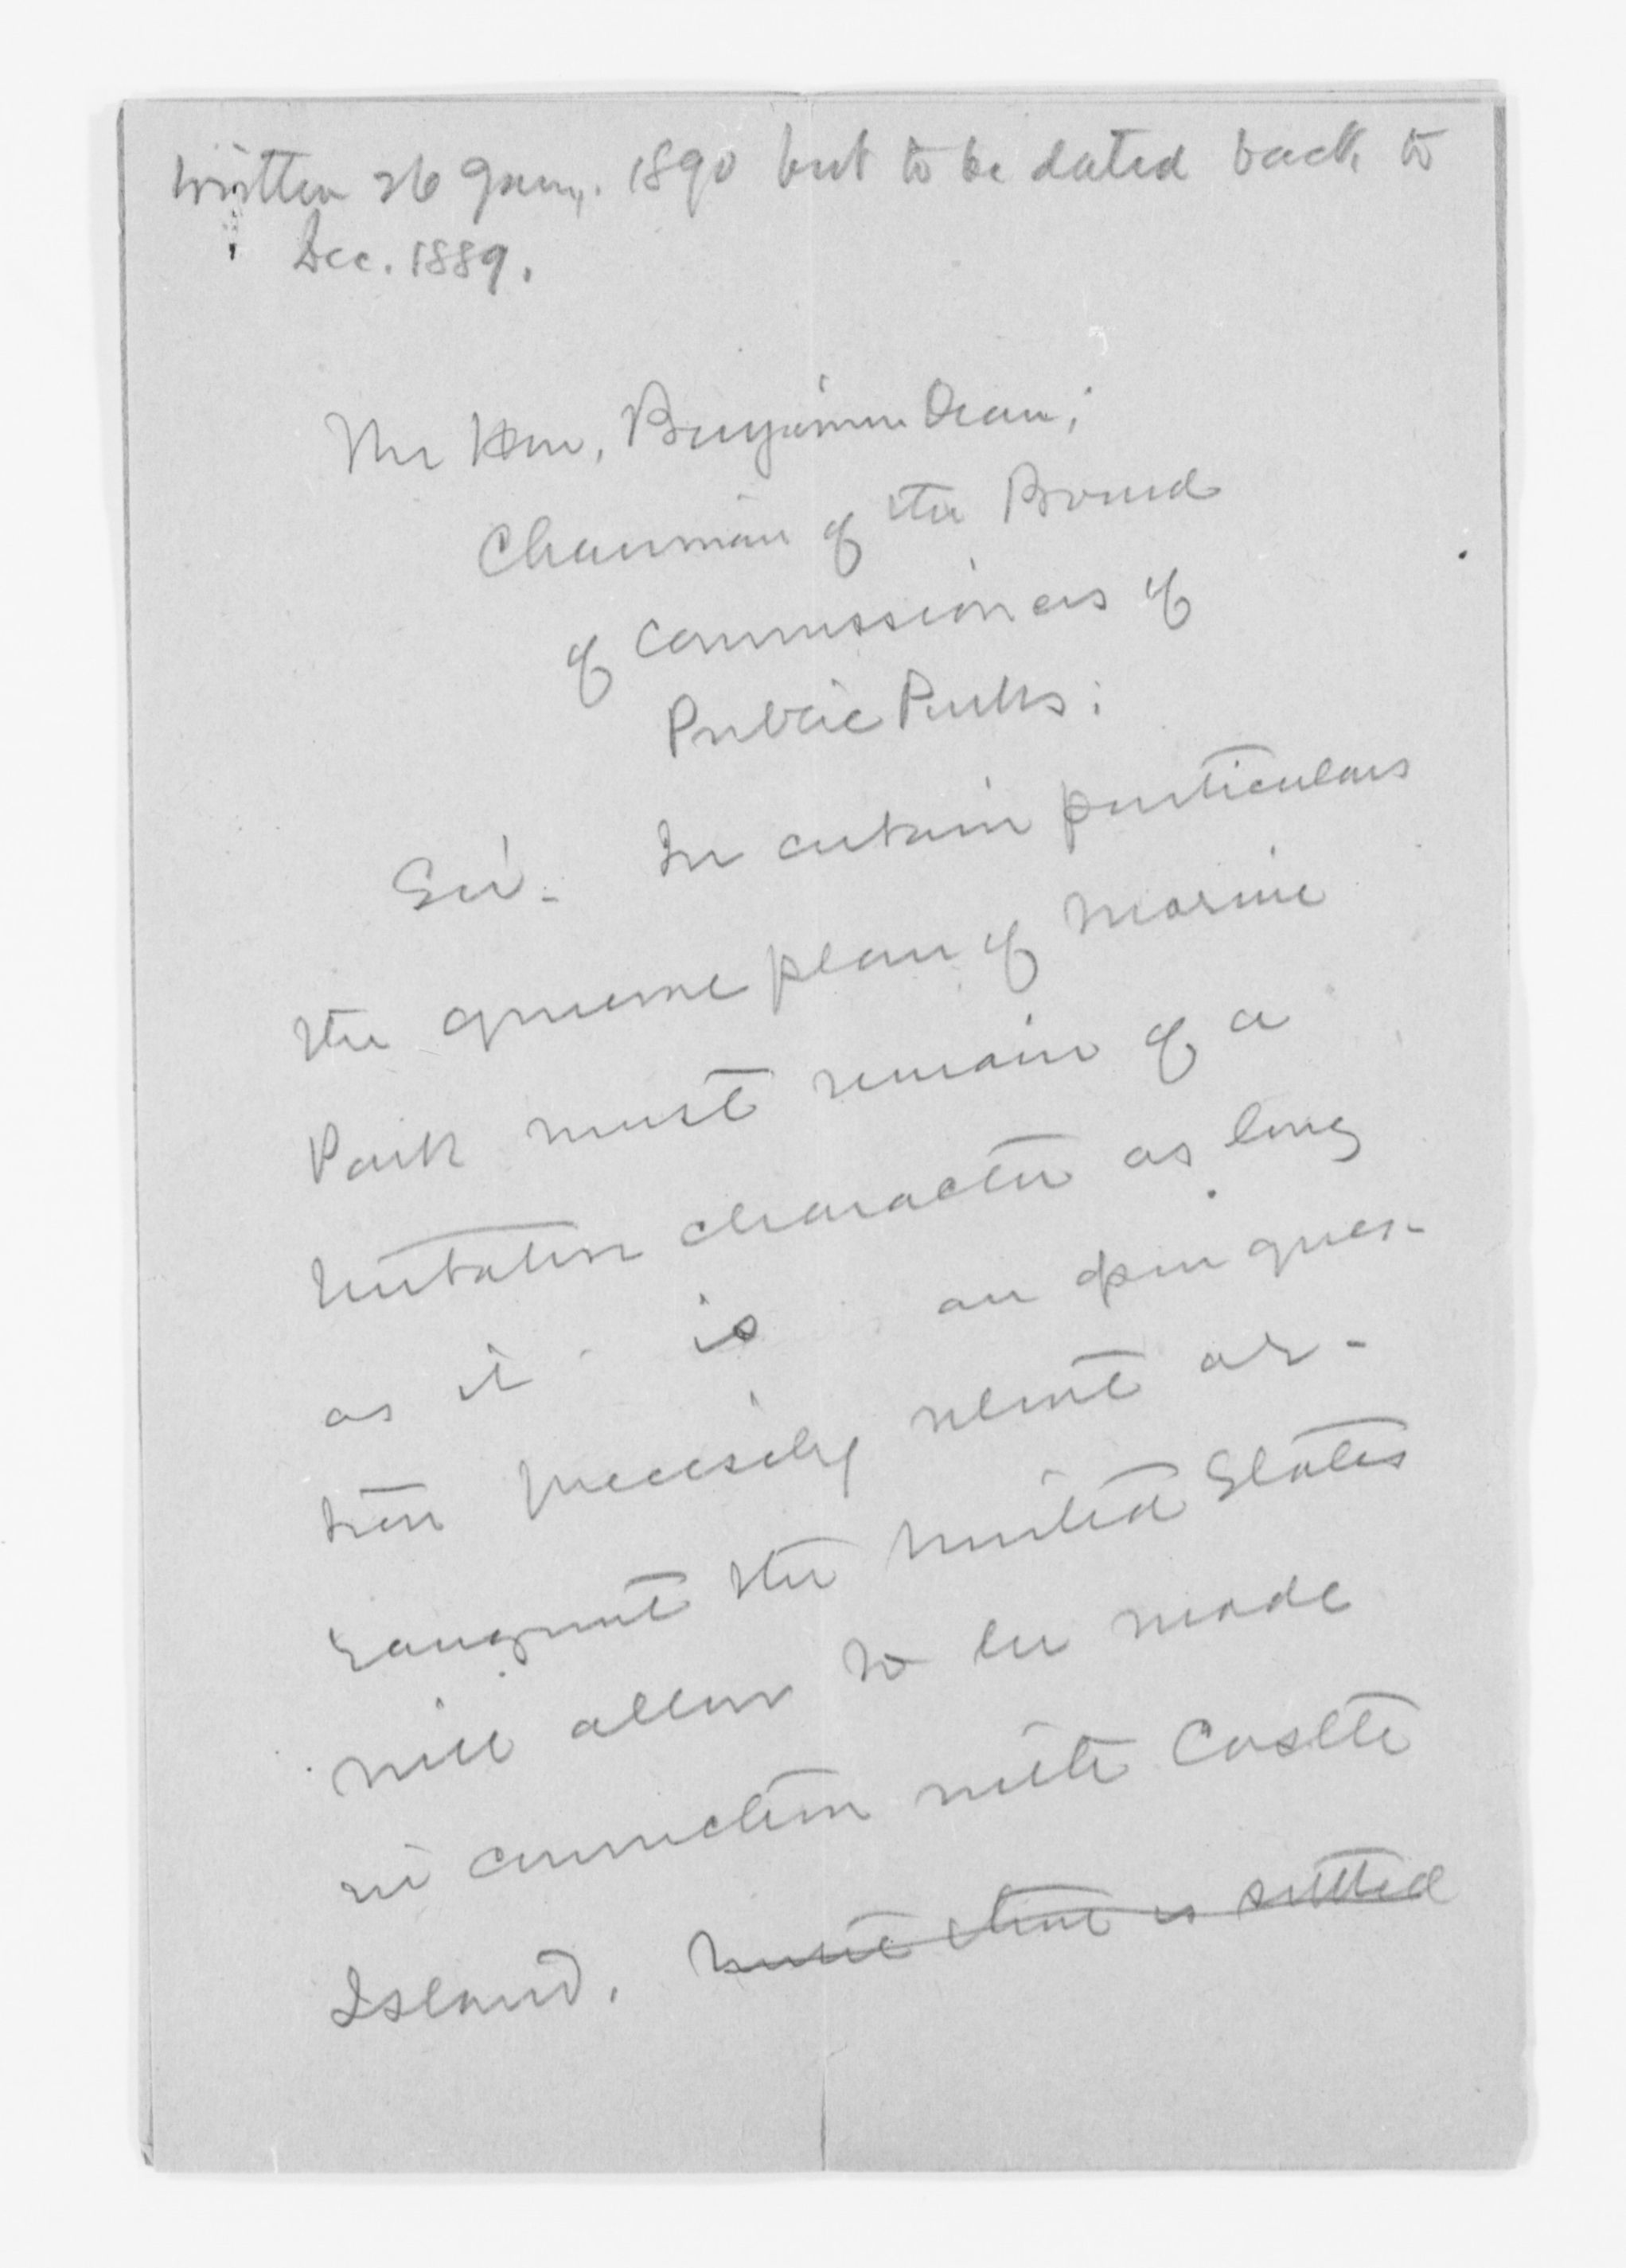 written 26 Jany. 1890 but to be dated back to
Dec. 1889.
The Hon. Benjamin Dean;
Chairman of the Board
of Commissioners of
Public Parks:
Sir. In certain particulars
the general plan of Marine
Park must remain of a
tentative character as long
as it is an open ques-
tion precisely what ar-
rangement the United States
will allow to be made
in connection with Castle
Island. Until that is settled